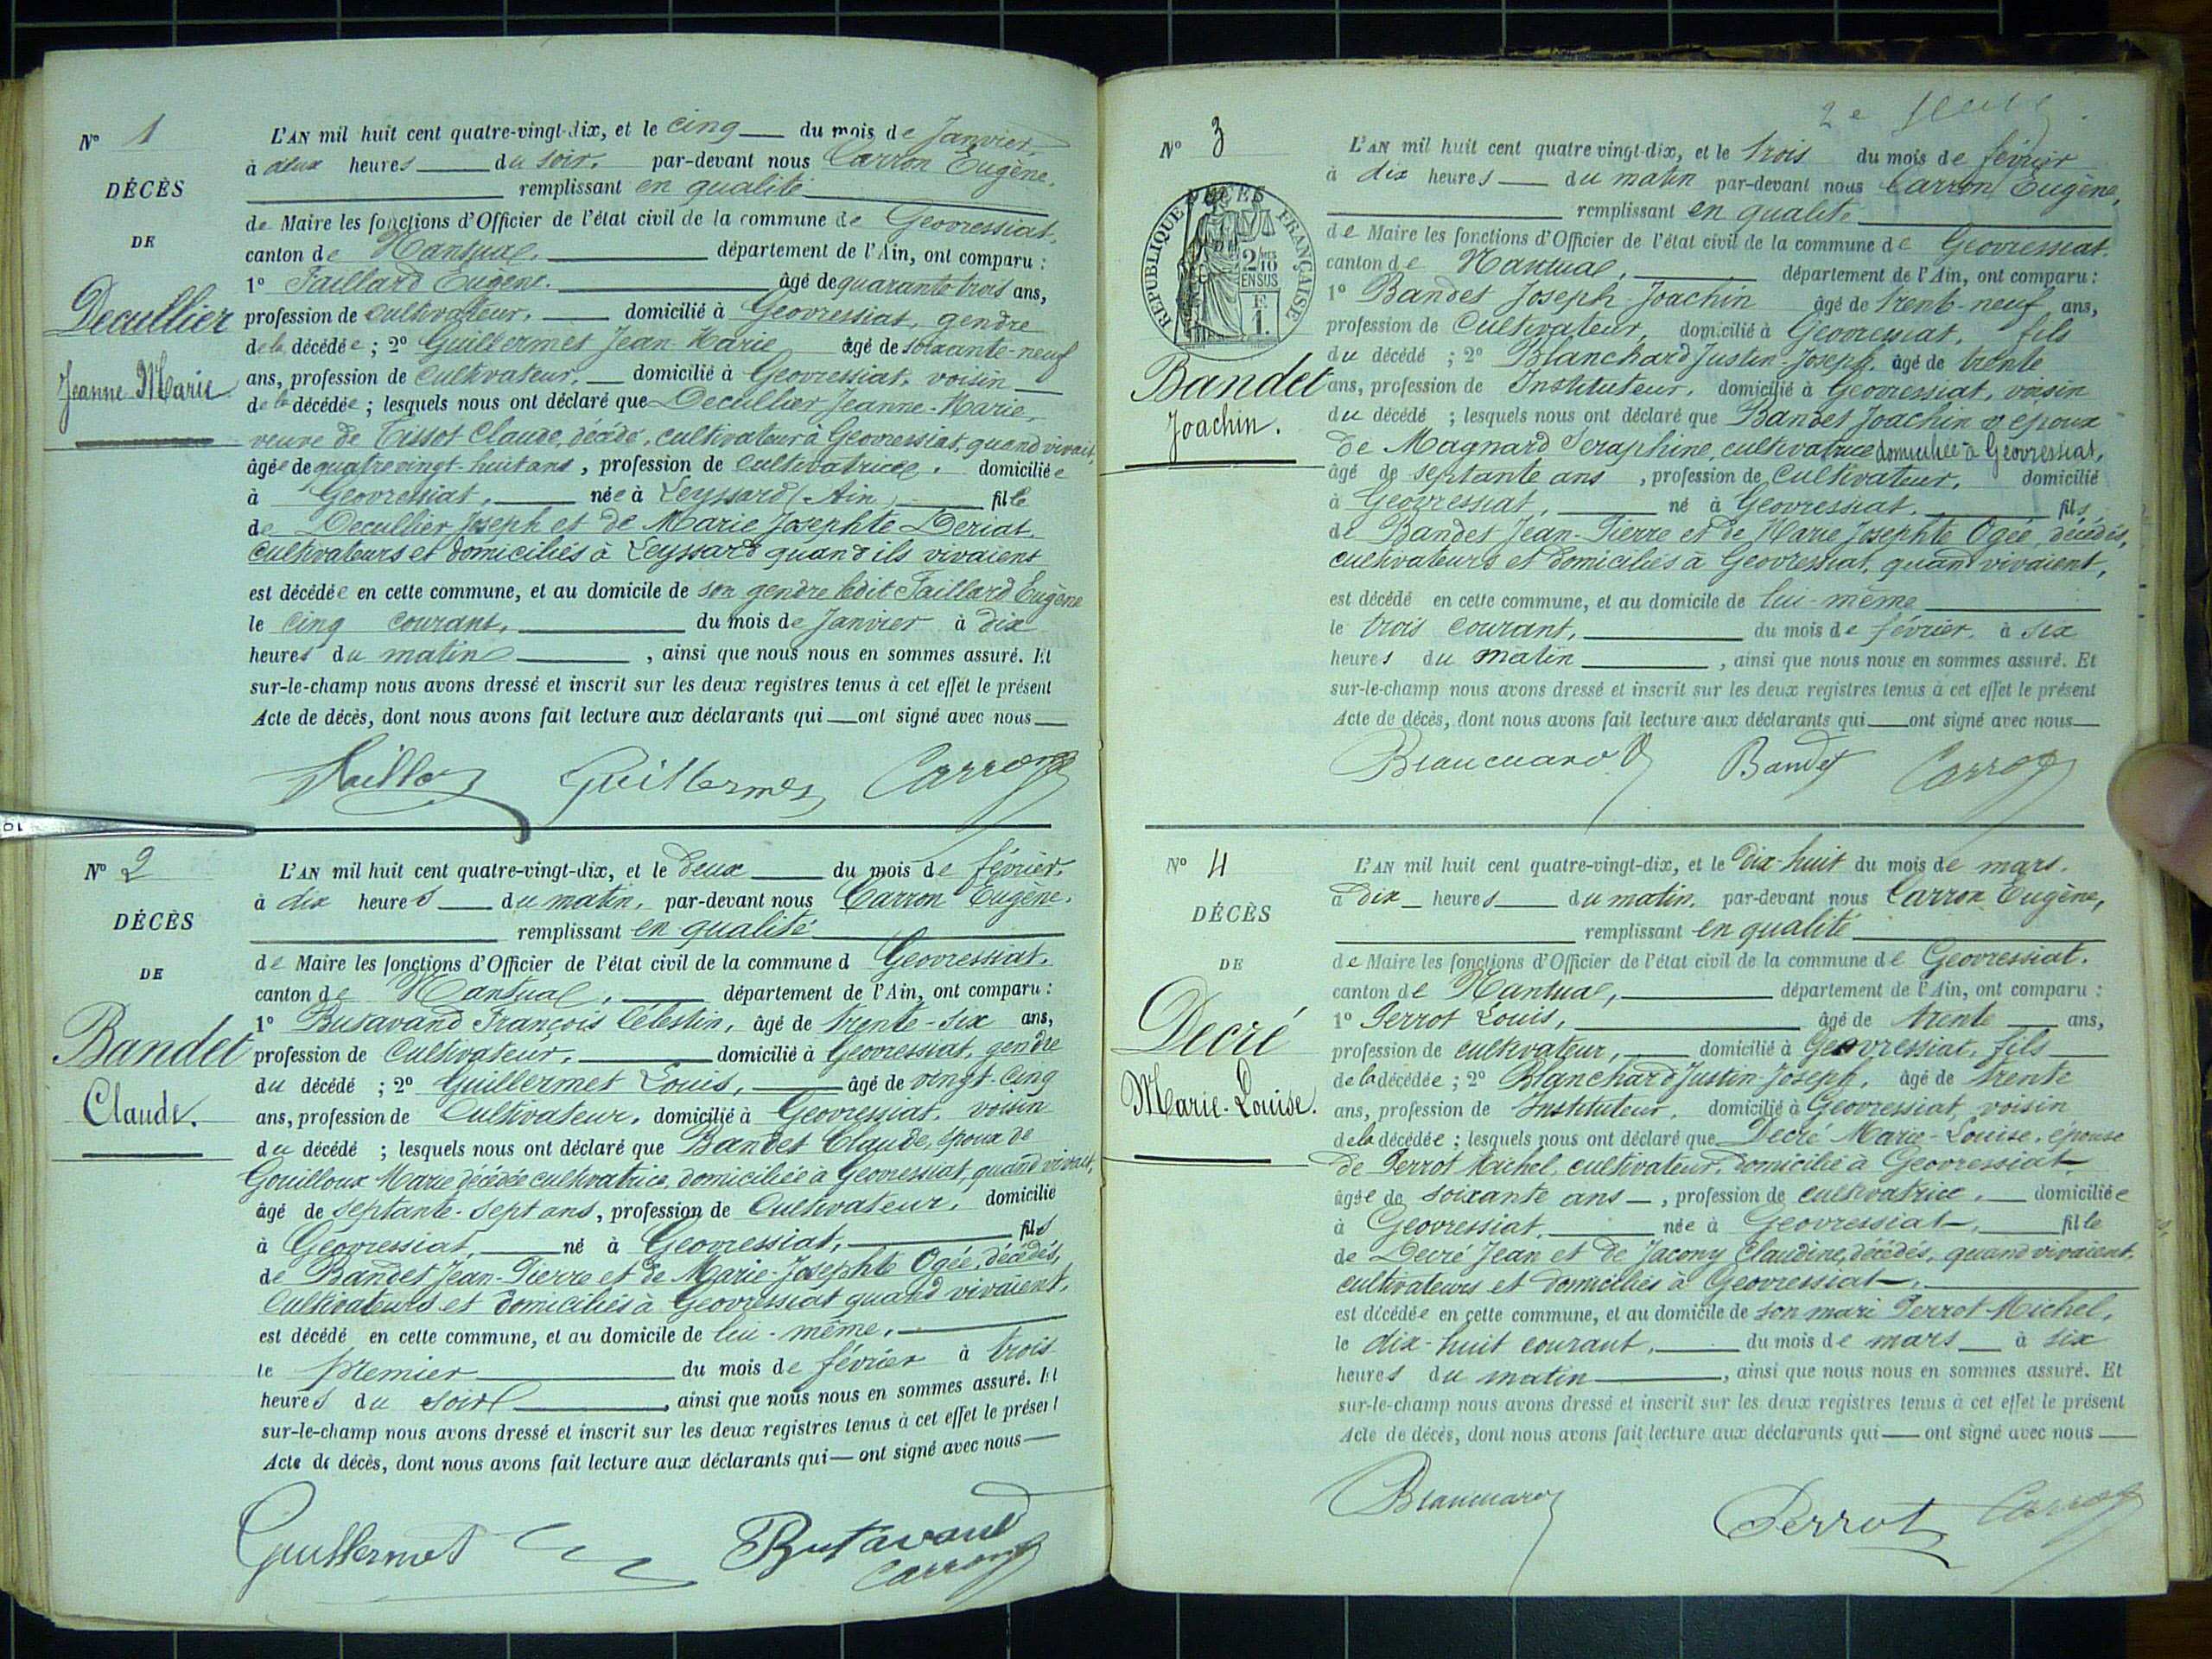 N° 1
DÉCÈS
DE
Decullier
Jeanne Marie
L'AN mil huit cent quatre-vingt-dix, et le cinq du mois de Janvier,
à deux heures du soir, par-devant nous Carron Eugène,
remplissant en qualité
de Maire les fonctions d'Officier de l'état civil de la commune de Geovressiat,
canton de Nantua, département de l'Ain, ont comparu :
1° Taillard Eugène. âgé de quarante trois ans,
profession de Cultivateur, domicilié à Geovressiat, gendre
de la décédée ; 2° Guillermet Jean-Marie âgé de soixante-neuf
ans, profession de cultivateur, domicilié à Geovressiat, voisin
de la décédée ; lesquels nous ont déclaré que Decullier Jeanne-Marie,
veuve de Tissot Claude, décédé, cultivateur à Geovressiat, quand vivait,
âgée de quatre vingt-huit ans, profession de cultivatrice, domiciliée
à Geovressiat, née à Leyssard (Ain) fille
de Decullier Joseph et de Marie Josephte Deriat
cultivateurs et domiciliés à Leyssard quand ils vivaient
est décédée en cette commune, et au domicile de son gendre ledit Taillard Eugène
le cinq courant, du mois de Janvier à dix
heures du matin, ainsi que nous nous en sommes assuré. Et
sur-le-champ nous avons dressé et inscrit sur les deux registres tenus à cet effet le présent
Acte de décès, dont nous avons fait lecture aux déclarants qui ont signé avec nous
Guillermet Carron
N° 2
DÉCÈS
DE
Bandet
Claude.
L'AN mil huit cent quatre-vingt-dix, et le deux du mois de février,
à dix heures du matin, par-devant nous Carron Eugène,
remplissant en qualité
de Maire les fonctions d'Officier de l'état civil de la commune d Geovressiat,
canton de Nantua, département de l'Ain, ont comparu :
1° Butavand François Célestin, âgé de trente-six ans,
profession de Cultivateur, domicilié à Geovressiat, gendre
du décédé ; 2° Guillermet Louis, âgé de vingt-cinq
ans, profession de Cultivateur, domicilié à Geovressiat, voisin
du décédé ; lesquels nous ont déclaré que Bandet Claude, époux de
Gouilloux Marie décédée cultivatrice, domiciliée à Geovressiat, quand vivait,
âgé de septante-sept ans, profession de Cultivateur, domicilié
à Geovressiat, né à Geovressiat, fils
de Bandet Jean-Pierre et de Marie-Josephte Ogée, décédés,
Cultivateurs et domiciliés à Geovressiat quand vivaient,
est décédé en cette commune, et au domicile de lui-même,
le premier du mois de février à trois
heures du soir, ainsi que nous nous en sommes assuré. Et
sur-le-champ nous avons dressé et inscrit sur les deux registres tenus à cet effet le présent
Acte de décès, dont nous avons fait lecture aux déclarants qui ont signé avec nous
Guillermet Butavand
Carron
N° 3
DÉCÈS
RÉPUBLIQUE FRANÇAISE
2/10
EN SUS
F
1.
Bandet
Joachin.
L'AN mil huit cent quatre vingt-dix, et le trois du mois de février
à dix heures du matin par-devant nous Carron Eugène,
remplissant en qualité
de Maire les fonctions d'Officier de l'état civil de la commune de Geovressiat.
canton de Nantua, département de l'Ain, ont comparu :
1° Bandet Joseph Joachin âgé de trente-neuf ans,
profession de Cultivateur, domicilié à Geovressiat, fils
du décédé ; 2° Blanchard Justin-Joseph, âgé de trente
ans, profession de Instituteur, domicilié à Geovressiat, voisin
du décédé ; lesquels nous ont déclaré que Bandet Joachin époux
de Magnard Seraphine, cultivatrice domiciliée à Geovressiat,
âgé de septante ans, profession de Cultivateur, domicilié
à Geovressiat, né à Geovressiat, fils
de Bandet Jean-Pierre et de Marie Josephte Ogée, décédés,
cultivateurs et domiciliés à Geovressiat, quand vivaient,
est décédé en cette commune, et au domicile de lui-même
le trois courant, du mois de février, à six
heures du matin, ainsi que nous nous en sommes assuré. Et
sur-le-champ nous avons dressé et inscrit sur les deux registres tenus à cet effet le présent
Acte de décès, dont nous avons fait lecture aux déclarants qui ont signé avec nous
Blanchard Bandet Carron
N° 4
DÉCÈS
DE
Decré
Marie-Louise.
L'AN mil huit cent quatre-vingt-dix, et le dix-huit du mois de mars.
à dix heures du matin, par-devant nous Carron Eugène,
remplissant en qualité
de Maire les fonctions d'Officier de l'état civil de la commune de Geovressiat.
canton de Nantua, département de l'Ain, ont comparu :
1° Perrot Louis, âgé de trente ans,
profession de cultivateur, domicilié à Geovressiat, fils
de la décédée ; 2° Blanchard Justin-Joseph, âgé de trente
ans, profession de Instituteur, domicilié à Geovressiat, voisin
de la décédée ; lesquels nous ont déclaré que Decré Marie-Louise, épouse
de Perrot Michel, cultivateur, domicilié à Geovressiat
âgée de soixante ans, profession de cultivatrice, domiciliée
à Geovressiat, née à Geovressiat, fille
de Decré Jean et de Jacony Claudine, décédés, quand vivaient,
cultivateurs et domiciliés à Geovressiat,
est décédée en cette commune, et au domicile de son mari Perrot Michel,
le dix-huit courant, du mois de mars à six
heures du matin, ainsi que nous nous en sommes assuré. Et
sur-le-champ nous avons dressé et inscrit sur les deux registres tenus à cet effet le présent
Acte de décès, dont nous avons fait lecture aux déclarants qui ont signé avec nous
Blanchard Perrot Carron